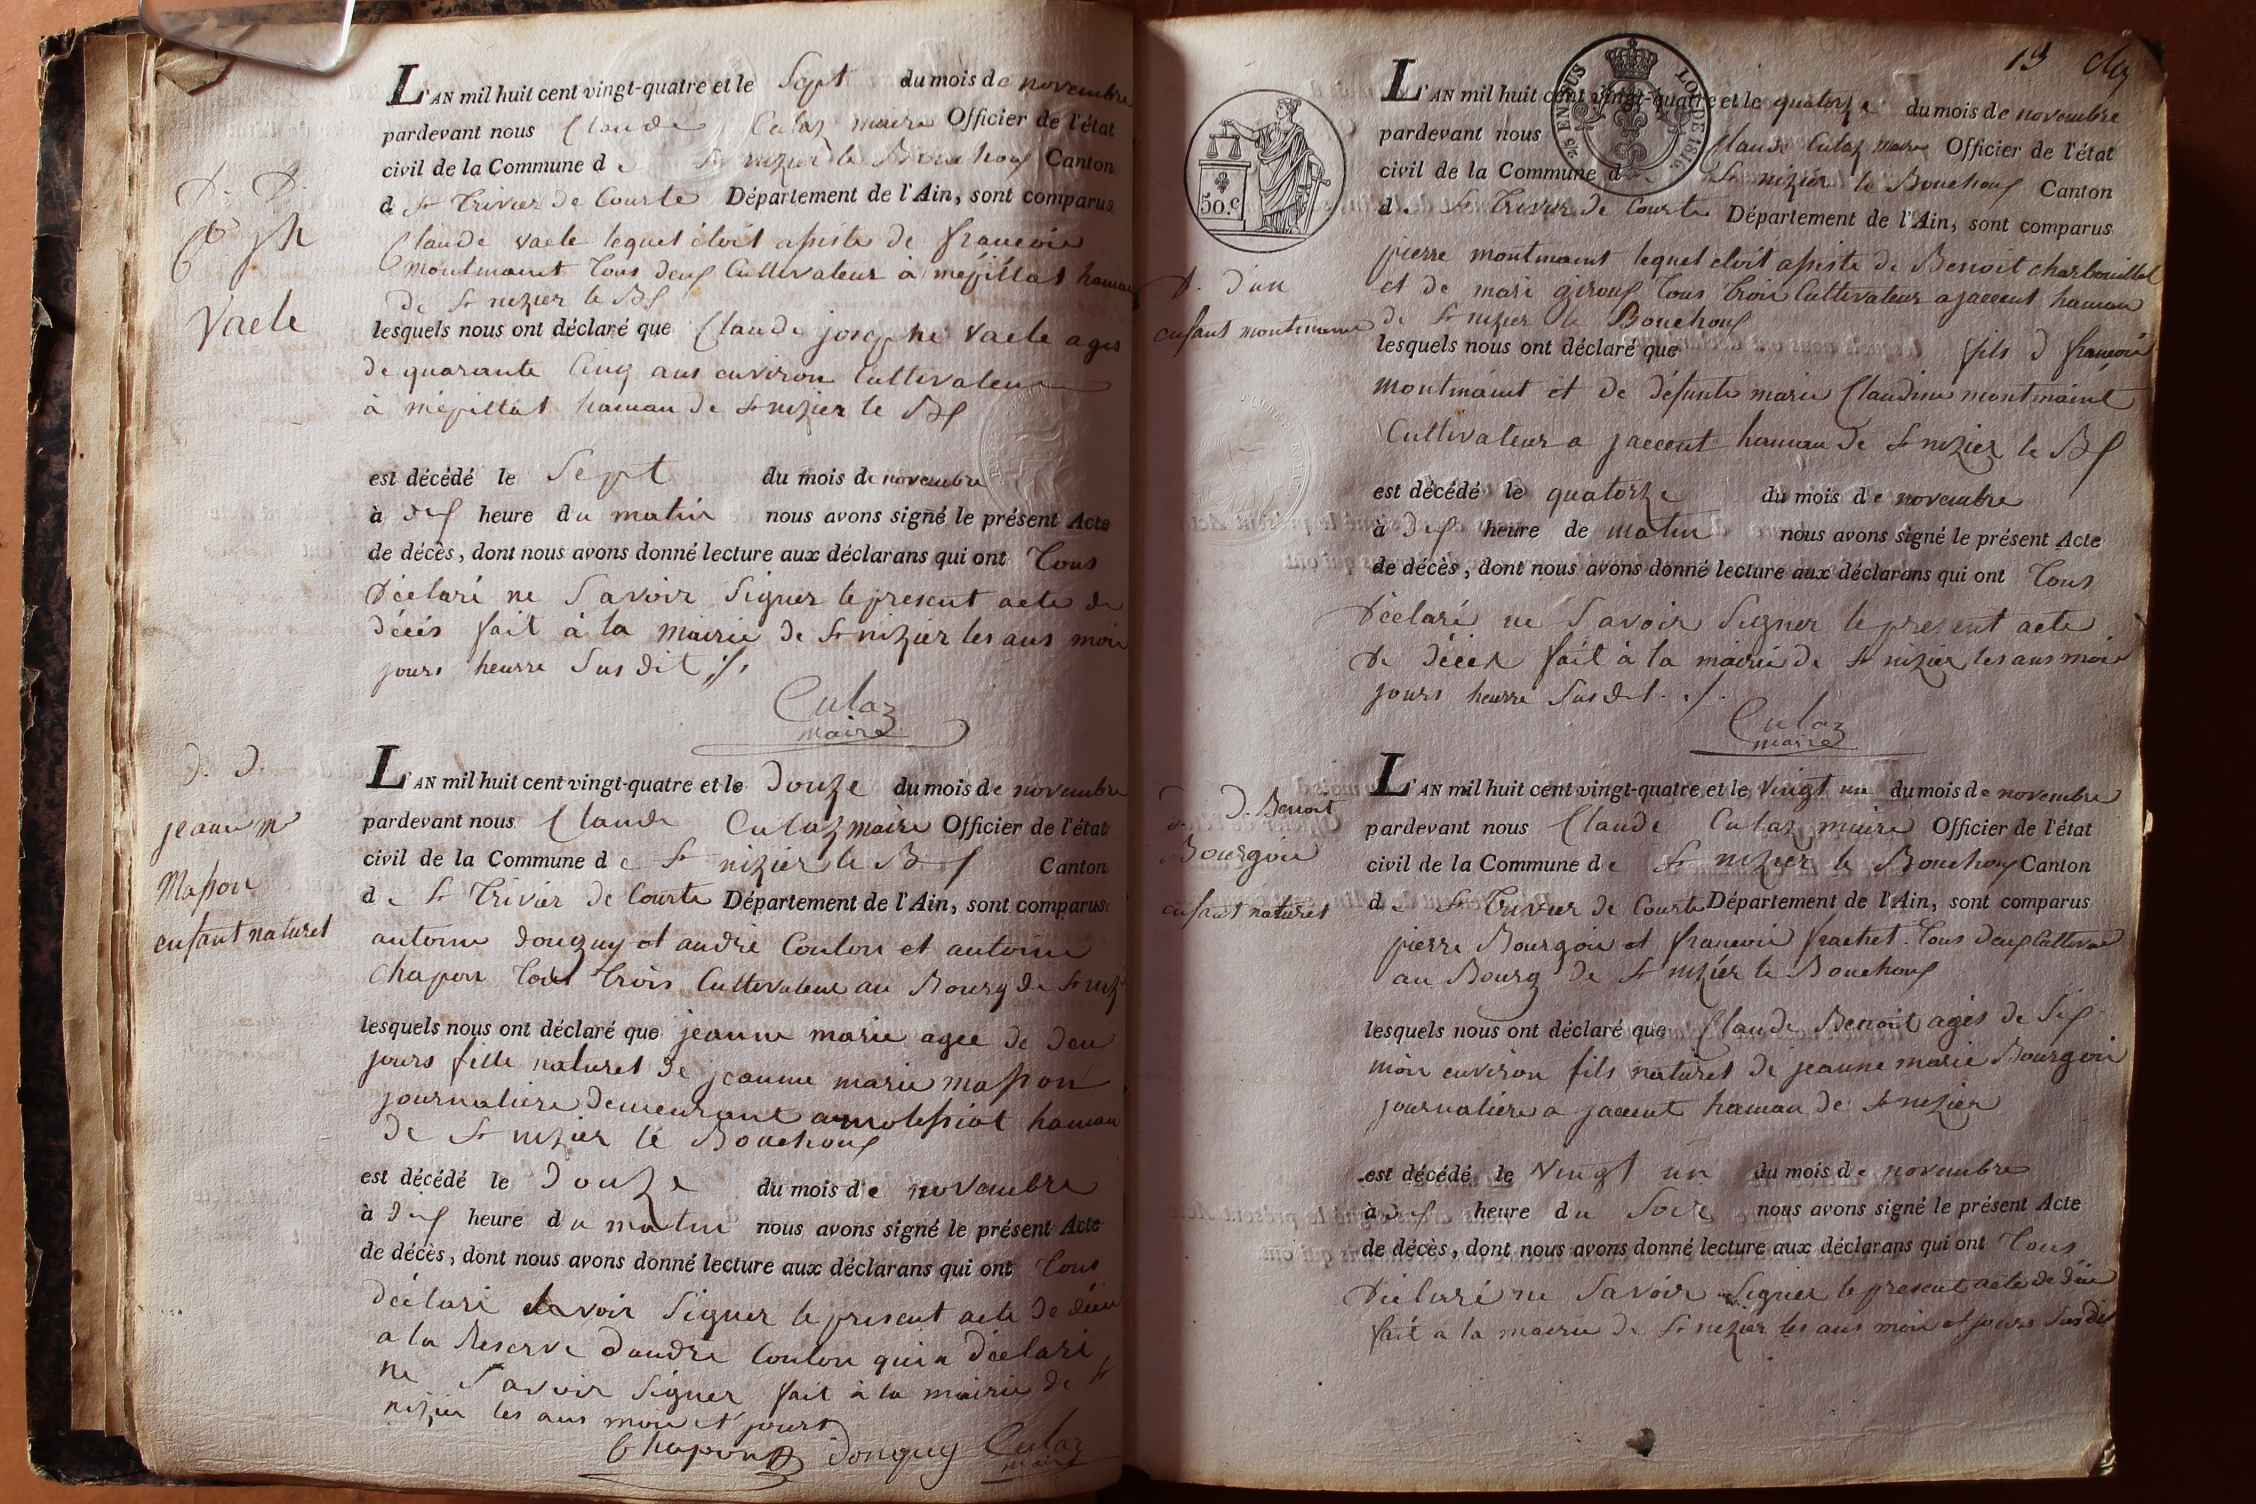 L'AN mil huit cent vingt-quatre et le Sept du mois de novembre
pardevant nous Claude Culaz maire Officier de l'état
civil de la Commune de St nizier le Bouchoux Canton
de St Trivier de Courte Département de l'Ain, sont comparus
D. D.
Claude Vaele lequel étoit assiste de francois
montmaint tous deux Cultivateur à mépillat hamau
de St nizier le Bx
Vaele
lesquels nous ont déclaré que Claude josephe Vaele ages
de quarante Cinq ans environ Cultivateur
à mépillat hamau de St nizier le Bx
est décédé le Sept du mois de novembre
à dix heure du matin nous avons signé le présent Acte
de décès, dont nous avons donné lecture aux déclarans qui ont Tous
Déclaré ne Savoir Signer le present acte de
décés fait à la mairie de St nizier les ans mois
jours heurre Susdit ./.
Culaz
maire
L'AN mil huit cent vingt-quatre et le Douze du mois de novembre
pardevant nous Claude Culaz maire Officier de l'état
civil de la Commune de St nizier le Bx Canton
de St Trivier de Courte Département de l'Ain, sont comparus
D. D.
jeanne Mie
Masson
enfant naturel
antoine donguy et andré Coulon et antoine
Chapon Tous trois Cultivateur au Bourg de St niz
lesquels nous ont déclaré que jeanne marie agee de deu
jours fille naturel de jeanne marie masson
journaliere demeurant a molessiat hamau
de St nizier le Bouchoux
est décédé le Douze du mois de novembre
à dix heure du matin nous avons signé le présent Acte
de décès, dont nous avons donné lecture aux déclarans qui ont Tous
déclaré Savoir Signer le present acte de décé
a la Reserve dandré Coulon qui a déclaré
ne Savoir Signer fait à la mairie de St
nizier les ans mois et jours
Chapon donguy Culaz
maire
19
25 EN SUS
LOI DE 1816
50.c
L'AN mil huit cent vingt-quatre et le quatorze du mois de novembre
pardevant nous Claude Culaz maire Officier de l'état
civil de la Commune de St nizier le Bouchoux Canton
de St Trivier de Courte Département de l'Ain, sont comparus
D. d'un
enfant montmaint
pierre montmaint lequel étoit assiste de Benoit charbouillet
et de mari giroux Tous trois Cultivateur a jaccent hamau
de St nizier le Bouchoux
lesquels nous ont déclaré que fils d francois
montmaint et de défunte marie Claudine montmaint
Cultivateur a jaccent hamau de St nizier le Bx
est décédé le quatorze du mois de novembre
à dix heure de matin nous avons signé le présent Acte
de décès, dont nous avons donné lecture aux déclarans qui ont Tous
Déclaré ne Savoir Signer le present acte
De décés fait à la mairie de St nizier les ans mois
jours heurre Susdit ./.
Culaz
maire
L'AN mil huit cent vingt-quatre et le Vingt un du mois de novembre
pardevant nous Claude Culaz maire Officier de l'état
civil de la Commune de St nizier le Bouchoux Canton
de St Trivier de Courte Département de l'Ain, sont comparus
D. D. Benoit
Bourgois
enfant naturel
pierre Bourgois et francois frachet Tous deux Cultivat
au Bourg de St nizier le Bouchoux
lesquels nous ont déclaré que Claude Benoit agés de Six
mois environ fils naturel de jeanne marie Bourgois
journaliere a jaccent hamau de St nizier
est décédé le Vingt un du mois de novembre
à dix heure du Soir nous avons signé le présent Acte
de décès, dont nous avons donné lecture aux déclarans qui ont Tous
Déclaré ne Savoir Signer le present acte de décé
fait a la mairie de St nizier les ans mois et jours Susdit